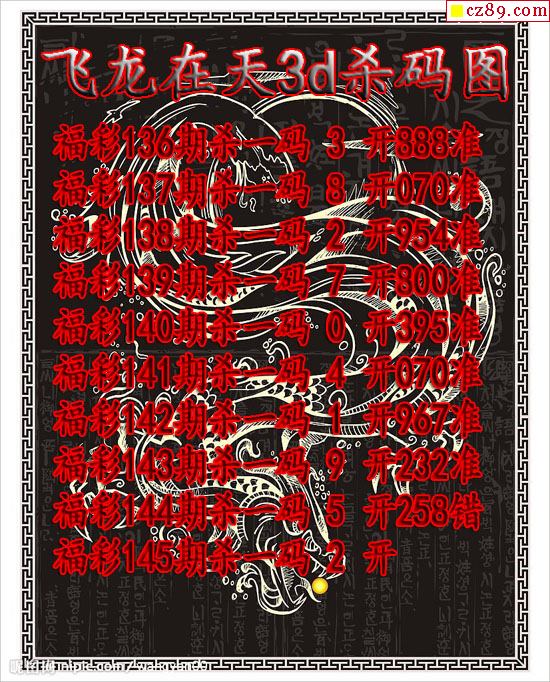 cz89.com
飞龙在天3d杀码图
福彩136期杀一码 3 开888准
福彩137期杀一码 8 开070准
福彩138期杀一码 2 开954准
福彩139期杀一码 7 开800准
福彩140期杀一码 0 开395准
福彩141期杀一码 4 开070准
福彩142期杀一码 1 开967准
福彩143期杀一码 9 开232准
福彩144期杀一码 5 开258错
福彩145期杀一码 2 开